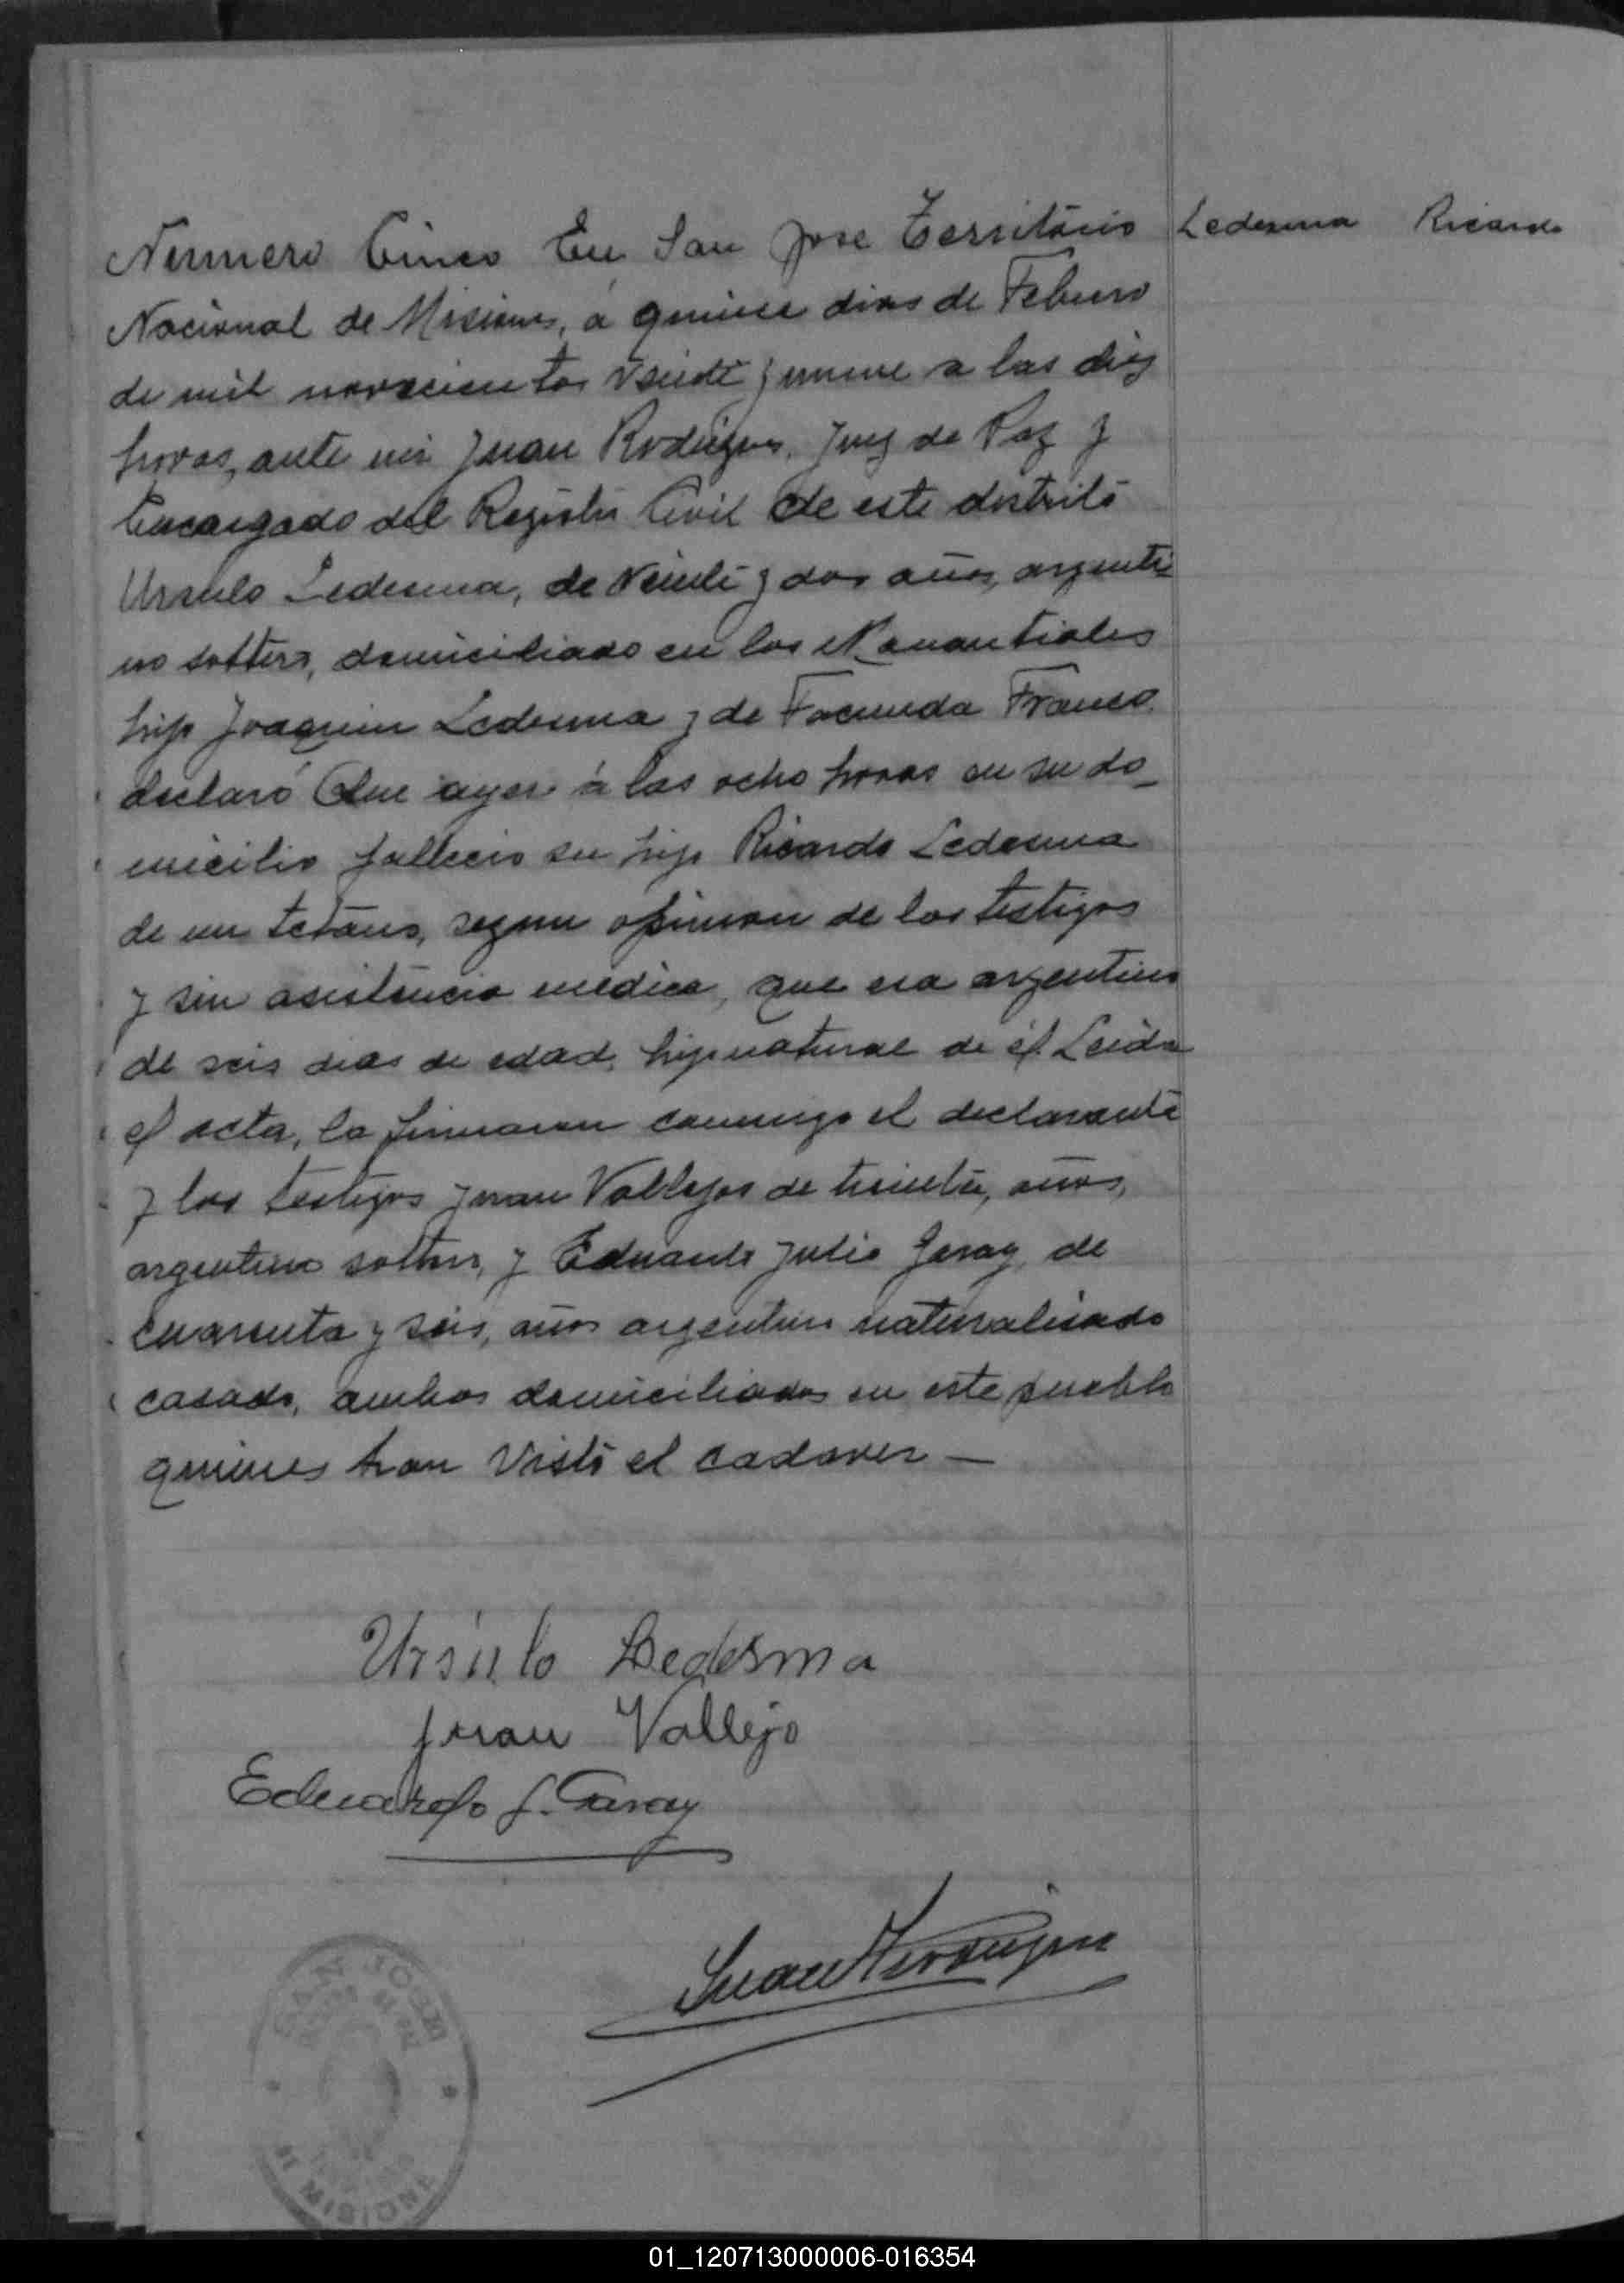 Numero Cinco En San Jose Territorio
Ledesma Ricardo
Nacional de Misiones, á quince dias de Febrero
de mil novecientos veinte y nueve a las diez
horas, ante mi Juan Rodriguez, Juez de Paz y
Encargado del Registro Civil de este distrito
Ursulo Ledesma, de veinte y dos años, argenti-
no soltero, domiciliado en los Manantiales
hijo Joaquin Ledesma y de Facunda Franco.
declaró Que ayer á las ocho horas en su do-
micilio fallecio su hijo Ricardo Ledesma
de un tetano, segun opinion de los testigos
y sin asistencia medica, que era argentino
de seis dias de edad, hijo natural de él. Leida
el acta, la firmaron conmigo el declarante
y los testigos Juan Vallejos de treinta, años,
argentino soltero, y Eduardo Julio Garay, de
cuarenta y seis, años argentino naturalisado
casado, ambos domiciliados en este pueblo
quienes han visto el cadaver —
Ursulo Ledesma
Juan Vallejo
Eduardo J. Garay
Juan Rodriguez
SAN JOSE
MISIONES
01_120713000006-016354